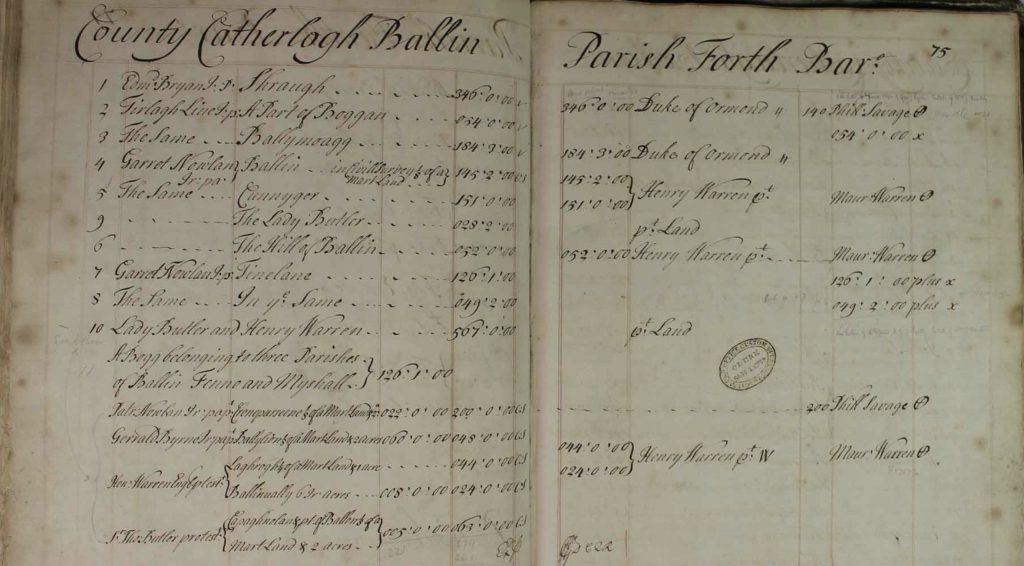 County Catherlogh Ballin
1 Edm: Bryan Ir: p: Shraugh 346:0:00
2 Tirlagh Line Ir p: A Part of Boggan 054:0:00
3 The Same Ballymoagg 184:3:00
4 Garret Nowlan Ir: pa: Ballin in Civill Survey of a Mart Land 145:2:00 CS
5 The Same Cunnyger 151:0:00
9 The Lady Butler 028:2:00
6 The Hill of Ballin 052:0:00
7 Garret Nowlan Ir p: Tinelane 126:1:00
8 The Same In ye Same 049:2:00
10 Lady Butler and Henry Warren 567:0:00
A Bogg belonging to three Parishes
of Ballin Fenno and Myshall 126:1:00
Nowlan Ir: pap: of a Mart Land 022:0:00 200:0:00 CS
Gerrald Byrne Ir pap: of a Mart Land & 2 acres 060:0:00 048:0:00 CS
of a Mart Land & 1 acre 044:0:00 CS
Hen: Warren Eng: protest:
Ballinually 6 Ir acres 008:0:00 024:0:00 CS
Capaghnolan & pt of Ballon & of a
Sr Tho: Butler protest: 005:0:00 063:0:00 CS
Mart Land & 2 acres
Parish Forth Bar: 75
346:0:00 Duke of Ormond 140 Phill Savage
054:0:00 x
184:3:00 Duke of Ormond
145:2:00
Henry Warren pt Maur Warren
151:0:00
pt Land
052:0:00 Henry Warren pt Maur Warren
126:1:00 plus x
049:2:00 plus x
pt Land
200 Phill Savage
044:0:00
Henry Warren pt IV Maur Warren
024:0:00